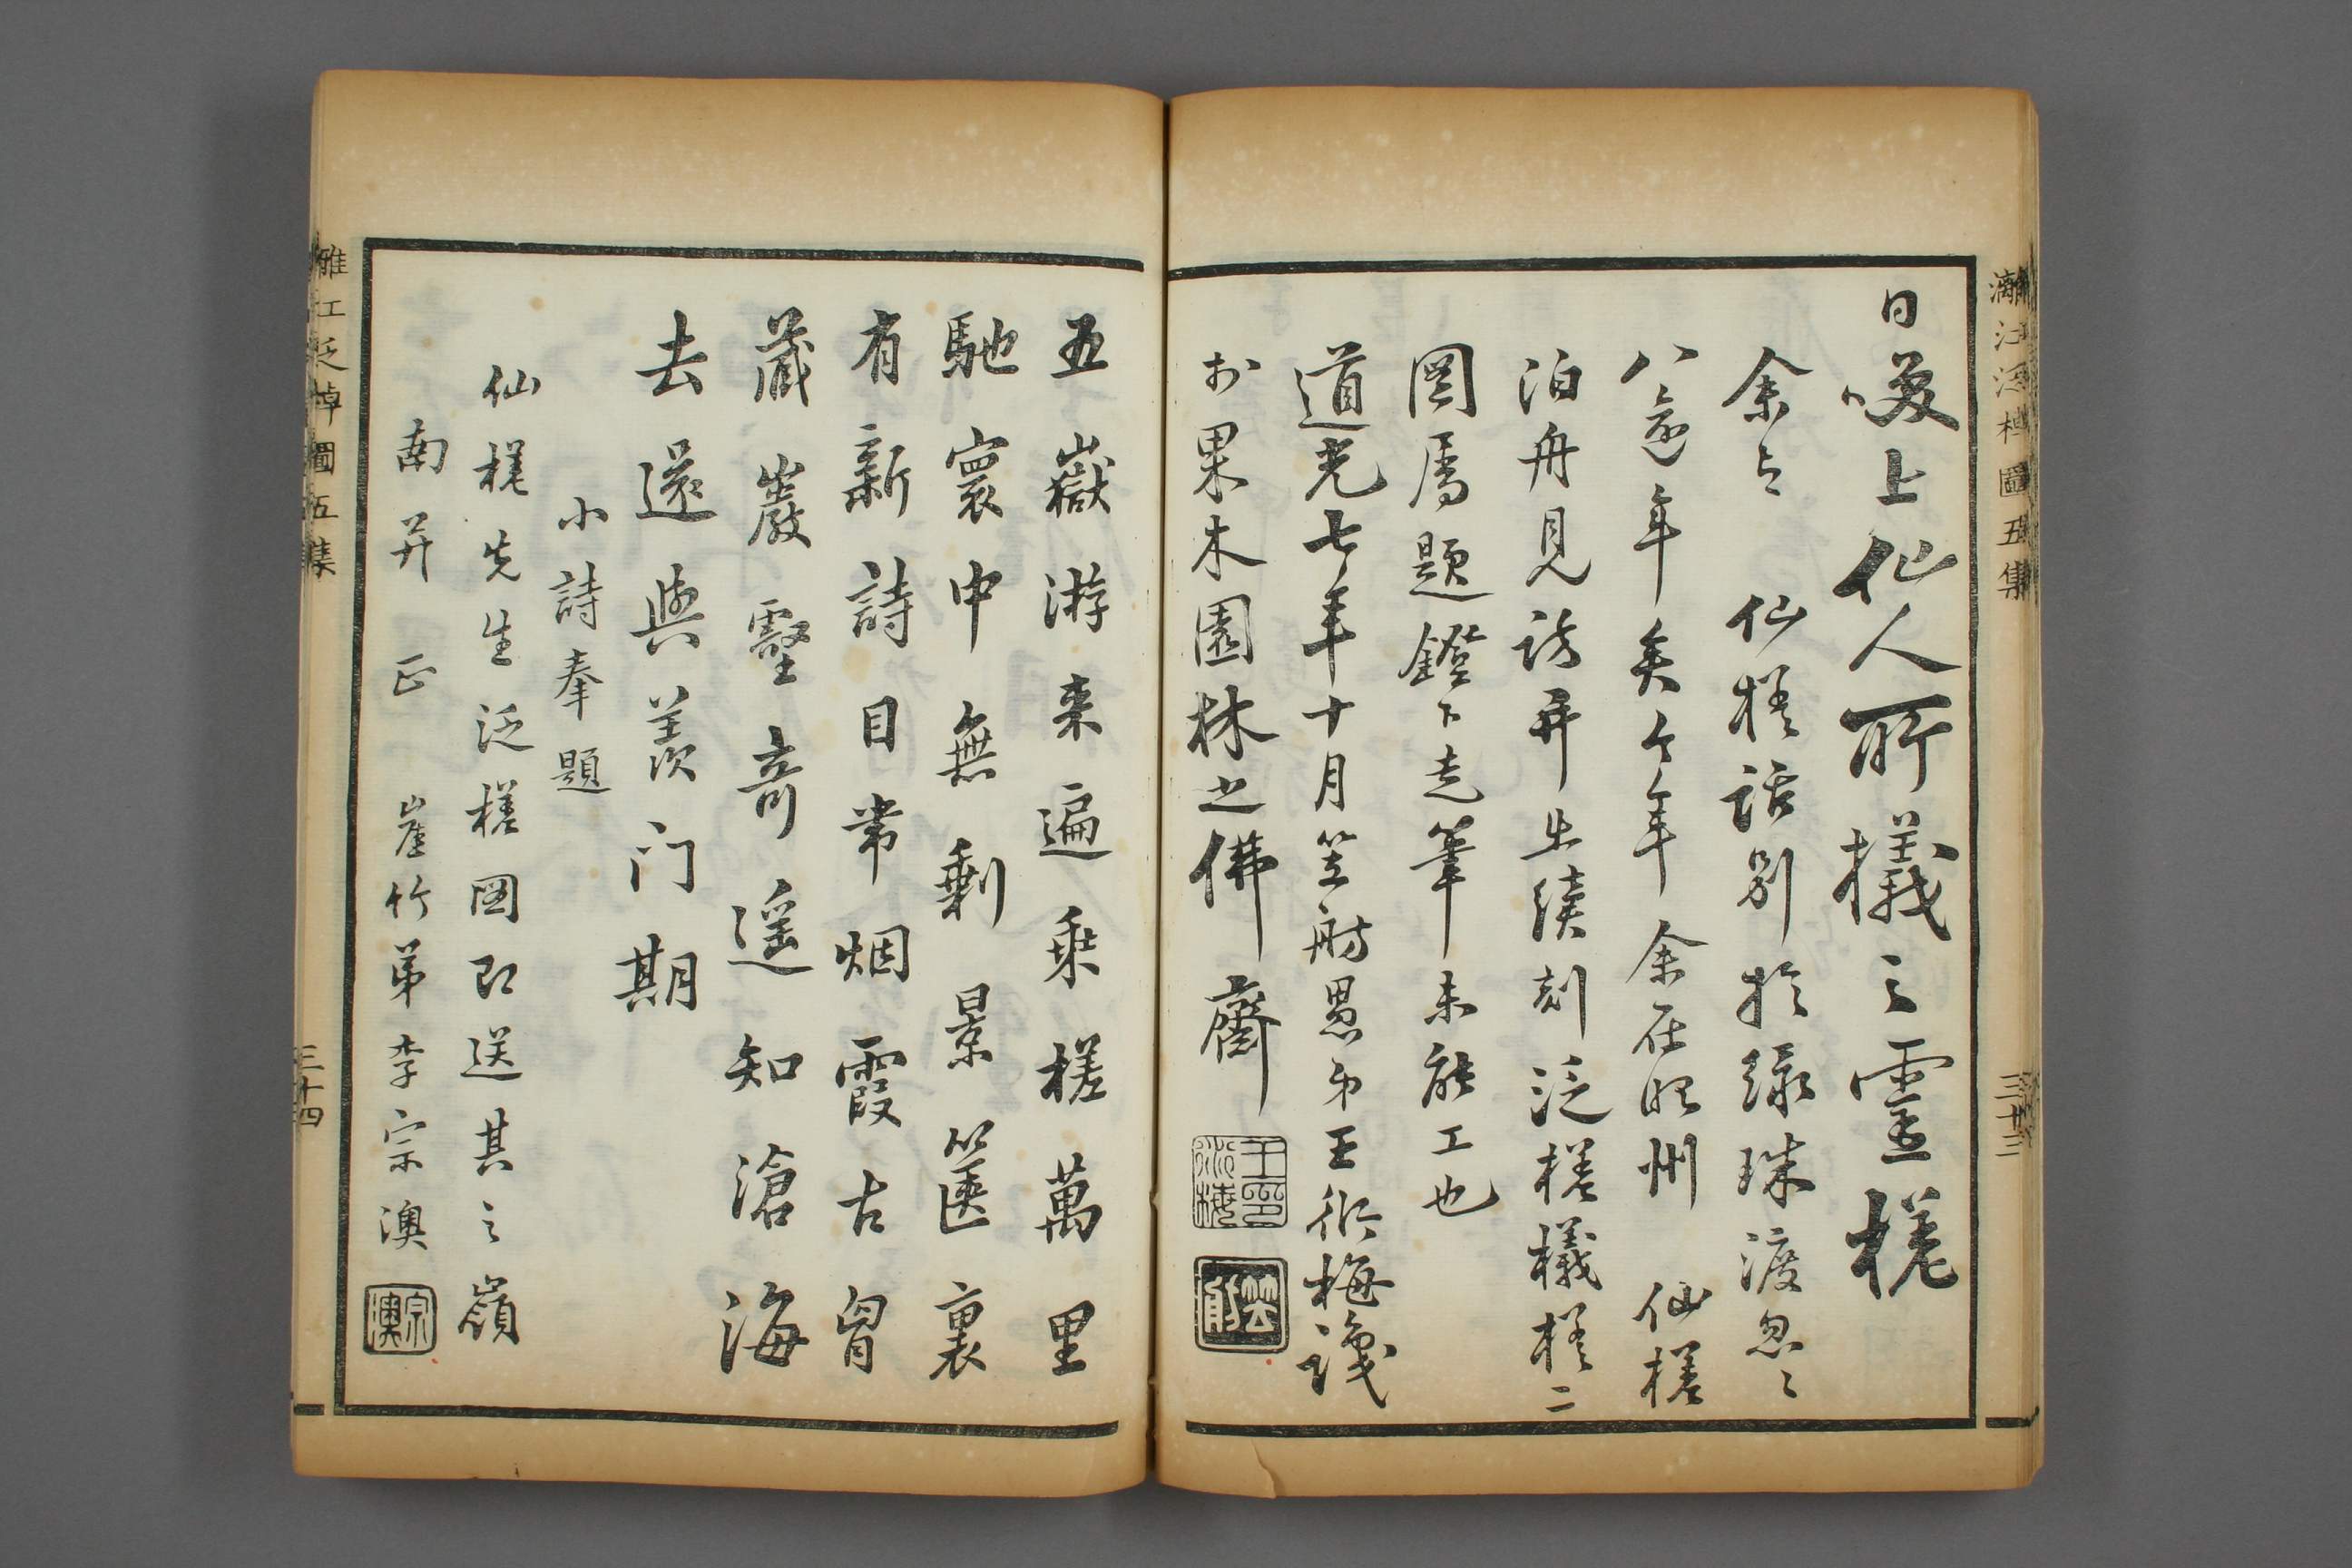 灕江泛槎圖五集
三十三
日喚上仙人所檥之靈槎
余与 仙槎話別於綠珠渡忽〻
八逾年矣今年余在昭州 仙槎
泊舟見訪并出續刻泛槎檥槎二
圖屬題鐙下走筆未能工也
道光七年十月笠舫愚弟王衍梅識
於果木園林之佛齋
王衍梅印
笠舫
五嶽游来遍乘槎萬里
馳寰中無剩景篋裏
有新詩目常烟霞古胷
藏巖壑奇遥知滄海
去還與羨门期
小詩奉題
仙槎先生泛槎图即送其之嶺
南并 正 崖竹弟李宗澳
宗澳
離江泛棹圖五集
三十四